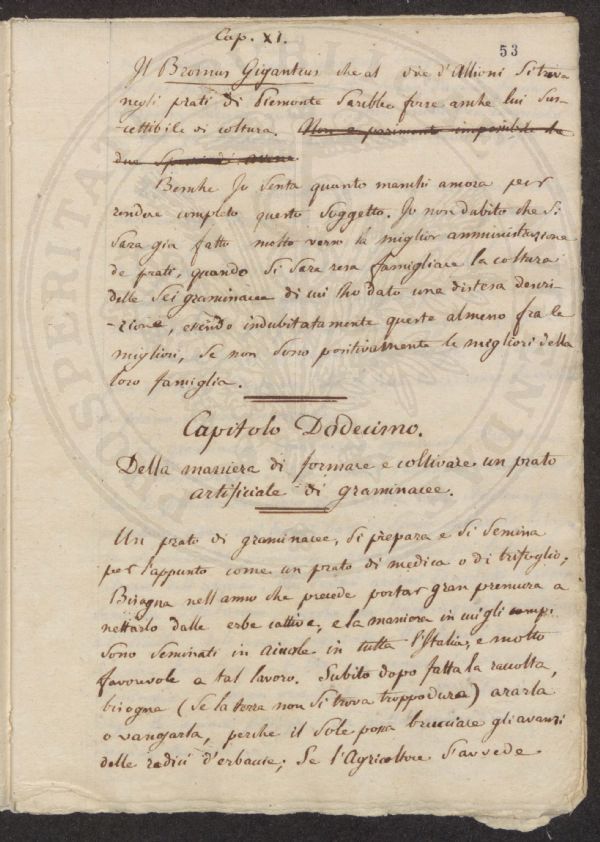 Cap. XI.
53
Il Bromus Giganteus che al dire d'Allioni si trova
negli prati di Piemonte sarebbe forse anche lui sus-
-cettibile di coltura. Non e parimente impossibile che
due Specie di avena
Benche Io senta quanto manchi ancora per
rendere completo questo soggetto. Io non dubito che si
sara gia fatto molto verso la miglior amministrazione
de prati, quando si sara resa famigliare la coltura
delle sei graminacee di cui ho dato una distesa descri-
-zione, essendo indubitatamente queste almeno fra le
migliori, se non sono positivamente le migliori della
loro famiglia.
Capitolo Dodecimo.
Della maniera di formare e coltivare un prato
artificiale di graminacee.
Un prato di graminacee, si prepara e si semina
per l'appunto come un prato di medica o di trifoglio;
Bisogna nell anno che precede portar gran premura a
nettarlo dalle erbe cattive, e la maniera in cui gli campi
sono seminati in aiuole in tutta l'Italia, e molto
favorevole a tal lavoro. Subito dopo fatta la raccolta,
bisogna (se la terra non si trova troppo dura) ararla
o vangarla, perche il sole possa bruciare gli avanzi
delle radici d'erbacie; Se l'Agricoltore s'avvede
PROSPERITAT